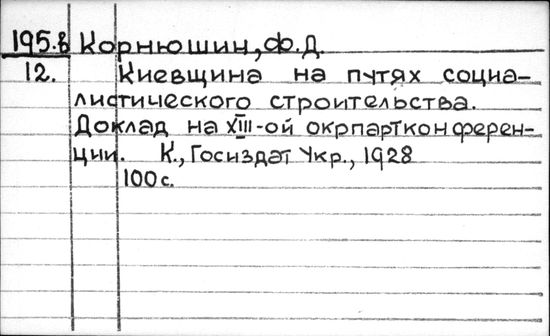 195.в Корнюшин, Ф.Д.
12. Киевщина на путях социа-
листического строительства.
Доклад на XIII-ой окрпартконферен-
ции. К., Госиздат Укр., 1928
100 с.